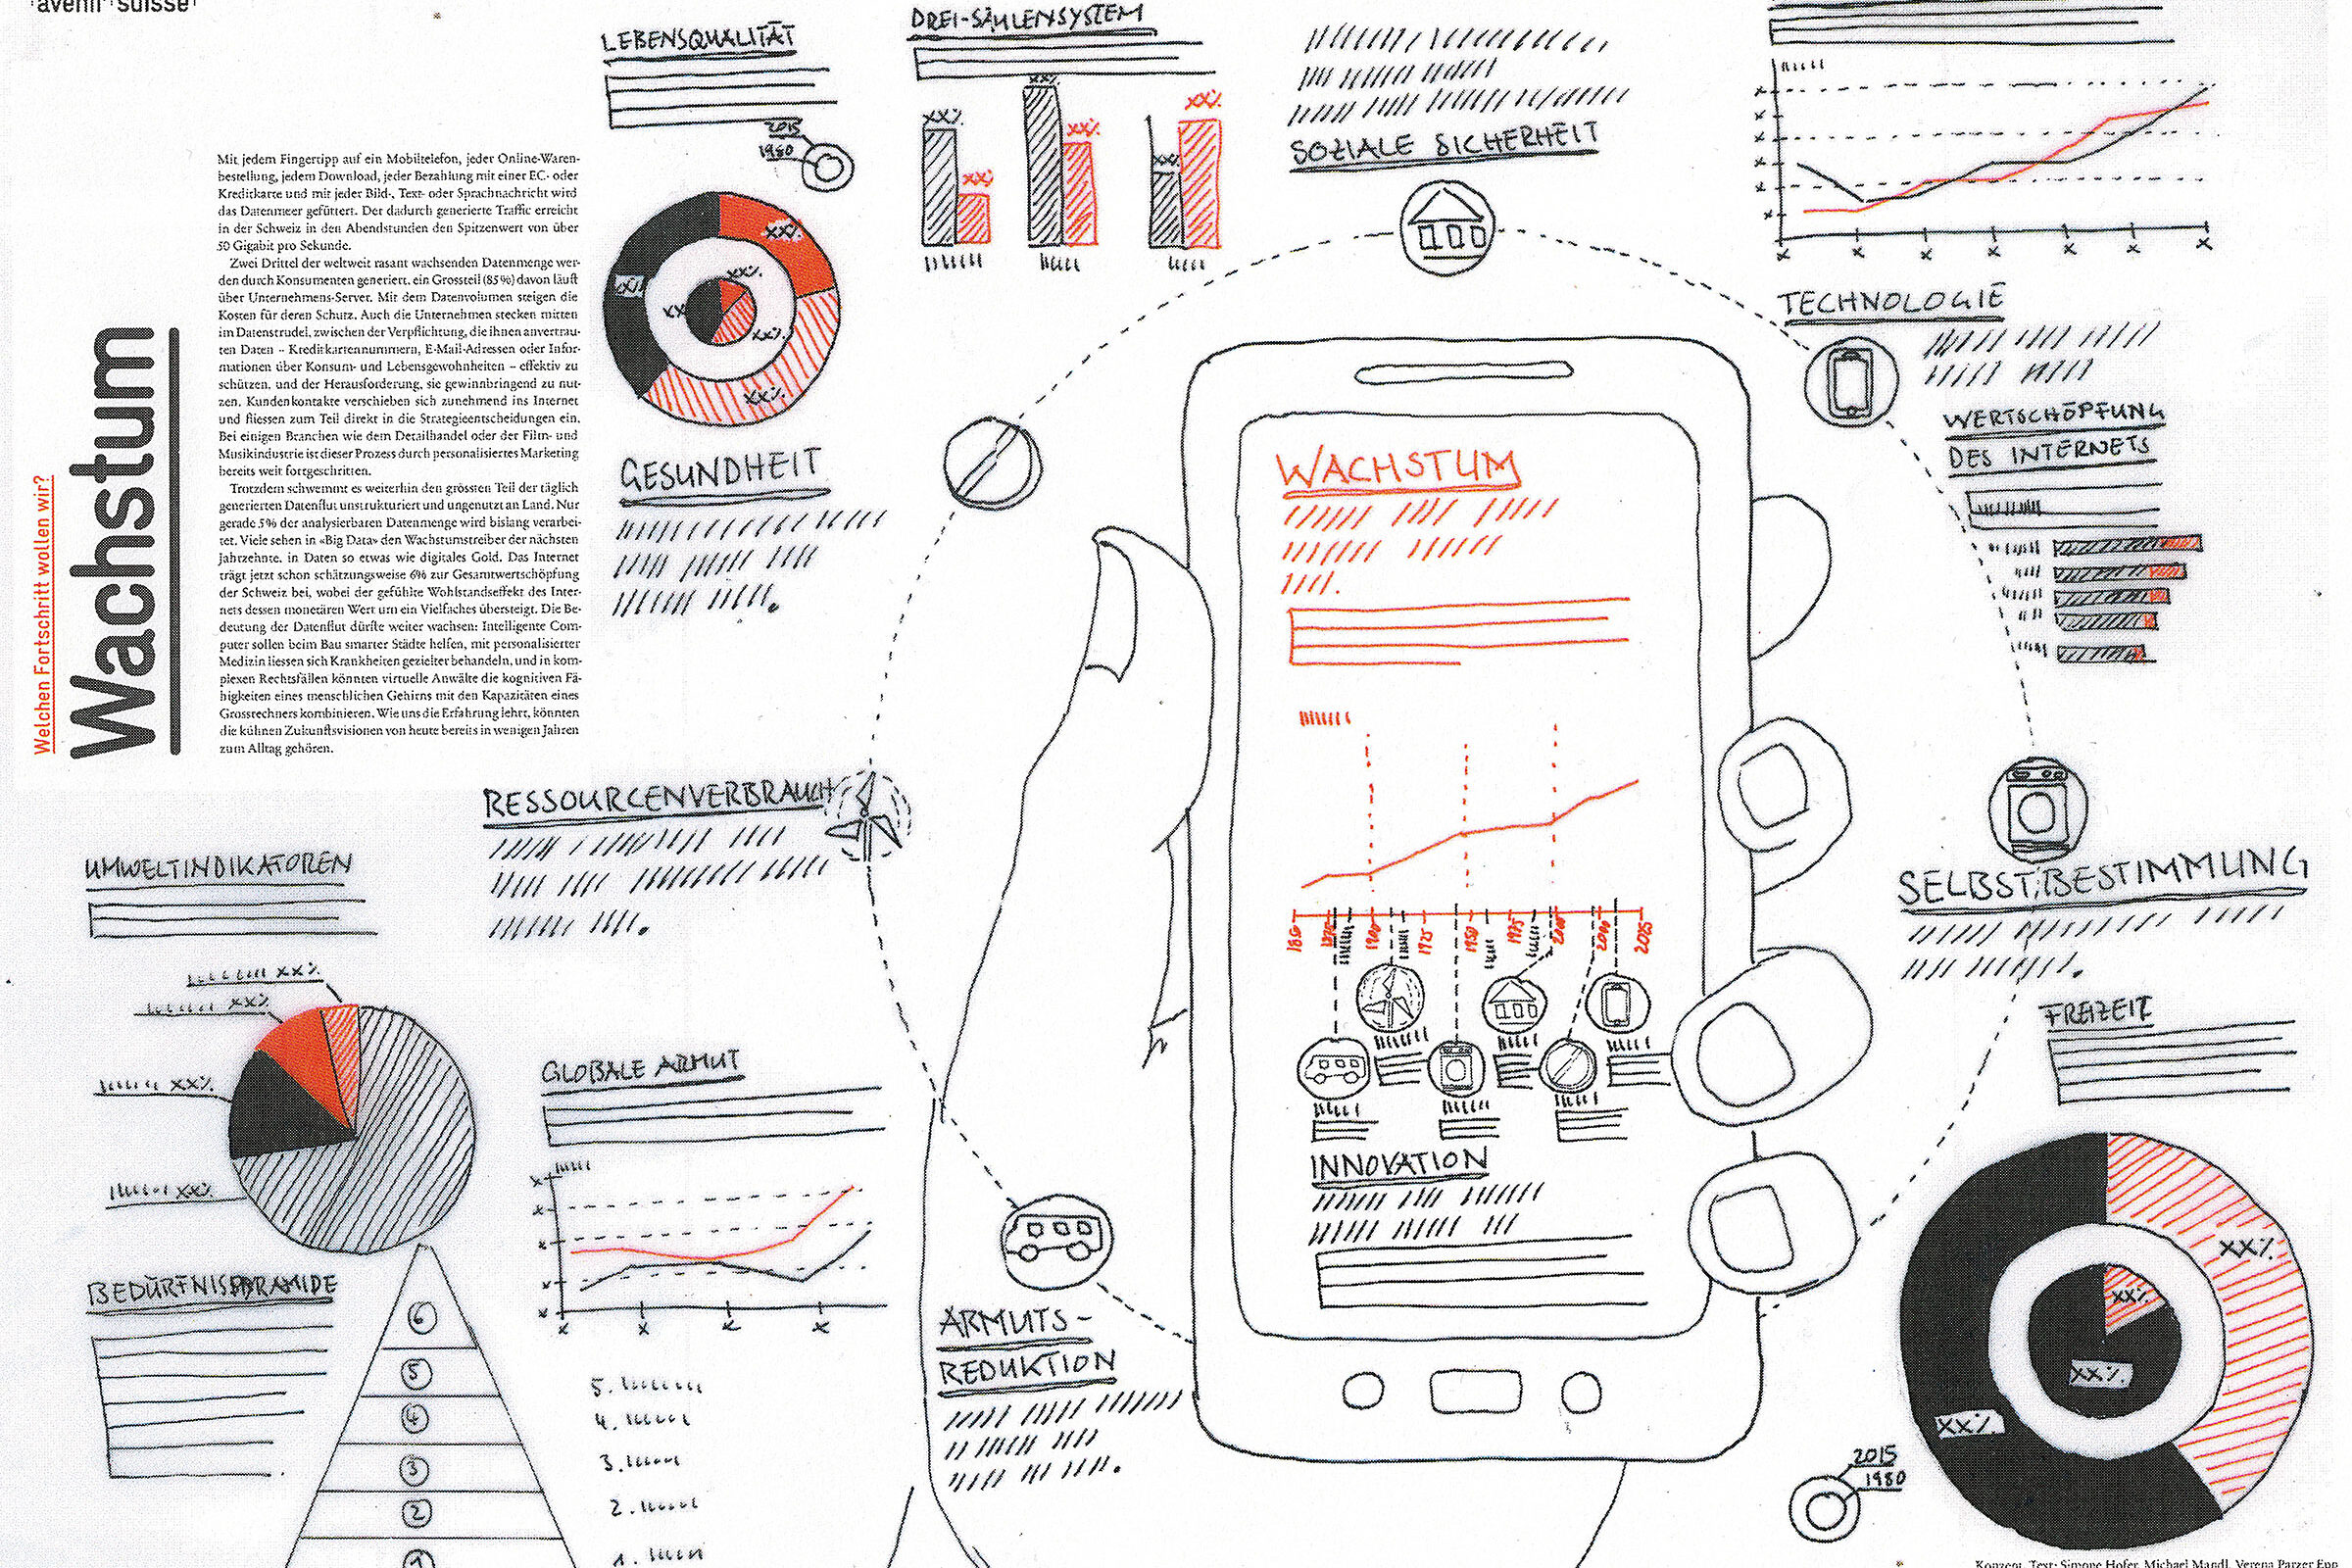 avenir suisse
Welchen Fortschritt wollen wir?
Wachstum
Mit jedem Fingertipp auf ein Mobiltelefon, jeder Online-Waren-
bestellung, jedem Download, jeder Bezahlung mit einer EC- oder
Kreditkarte und mit jeder Bild-, Text- oder Sprachnachricht wird
das Datenmeer gefüttert. Der dadurch generierte Traffic erreicht
in der Schweiz in den Abendstunden den Spitzenwert von über
50 Gigabit pro Sekunde.
Zwei Drittel der weltweit rasant wachsenden Datenmenge wer-
den durch Konsumenten generiert, ein Grossteil (85%) davon läuft
über Unternehmens-Server. Mit dem Datenvolumen steigen die
Kosten für deren Schutz. Auch die Unternehmen stecken mitten
im Datenstrudel, zwischen der Verpflichtung, die ihnen anvertrau-
ten Daten – Kreditkartennummern, E-Mail-Adressen oder Infor-
mationen über Konsum- und Lebensgewohnheiten – effektiv zu
schützen, und der Herausforderung, sie gewinnbringend zu nut-
zen. Kundenkontakte verschieben sich zunehmend ins Internet
und fliessen zum Teil direkt in die Strategieentscheidungen ein.
Bei einigen Branchen wie dem Detailhandel oder der Film- und
Musikindustrie ist dieser Prozess durch personalisiertes Marketing
bereits weit fortgeschritten.
Trotzdem schwemmt es weiterhin den grössten Teil der täglich
generierten Datenflut unstrukturiert und ungenutzt an Land. Nur
gerade 5% der analysierbaren Datenmenge wird bislang verarbei-
tet. Viele sehen in «Big Data» den Wachstumstreiber der nächsten
Jahrzehnte, in Daten so etwas wie digitales Gold. Das Internet
trägt jetzt schon schätzungsweise 6% zur Gesamtwertschöpfung
der Schweiz bei, wobei der gefühlte Wohlstandseffekt des Inter-
nets dessen monetären Wert um ein Vielfaches übersteigt. Die Be-
deutung der Datenflut dürfte weiter wachsen: Intelligente Com-
puter sollen beim Bau smarter Städte helfen, mit personalisierter
Medizin liessen sich Krankheiten gezielter behandeln, und in kom-
plexen Rechtsfällen könnten virtuelle Anwälte die kognitiven Fä-
higkeiten eines menschlichen Gehirns mit den Kapazitäten eines
Grossrechners kombinieren. Wie uns die Erfahrung lehrt, könnten
die kühnen Zukunftsvisionen von heute bereits in wenigen Jahren
zum Alltag gehören.
LEBENSQUALITÄT
2015
1980
xx%
xx%
xx%
xx%
xx
xx%
GESUNDHEIT
DREI-SÄULENSYSTEM
xx%
xx%
xx%
xx%
xx%
xx%
SOZIALE SICHERHEIT
TECHNOLOGIE
WERTSCHÖPFUNG
DES INTERNETS
WACHSTUM
1900
1925
1950
1975
2000
2015
INNOVATION
SELBSTBESTIMMUNG
FREIZEIT
xx%
xx%
xx%
xx%
2015
1980
RESSOURCENVERBRAUCH
UMWELTINDIKATOREN
xx%
xx%
xx%
xx%
GLOBALE ARMUT
ARMUTS-
REDUKTION
BEDÜRFNISPYRAMIDE
6
5
4
3
2
1
5.
4.
3.
2.
1.
Konzept, Text: Simone Hofer, Michael Mandl, Verena Parzer Epp